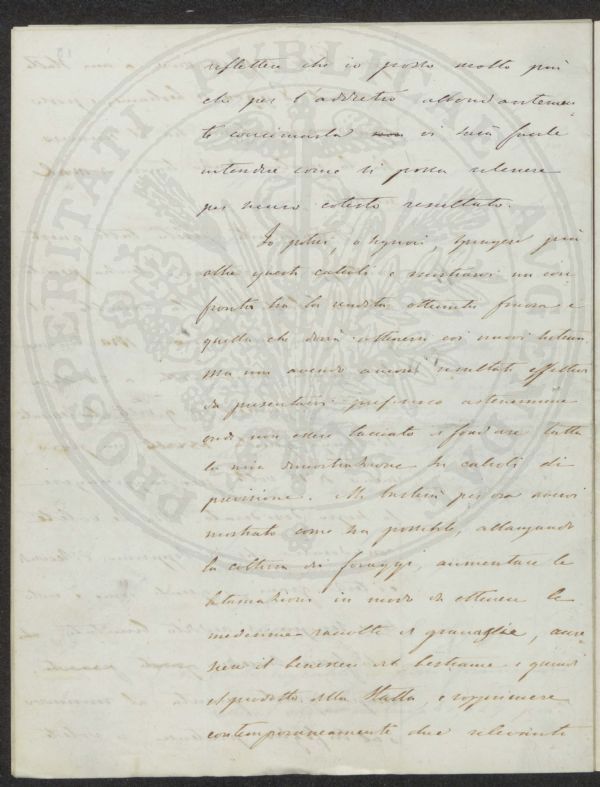 riflettere che io posso molto più
che per l'addietro abbondantemen-
te concimarla non vi sarà facile
intendere come si possa ritenere
per sicuro cotesto resultato.
Io potrei, o Signori, spingere più
oltre questi calcoli e mostrarvi un con-
fronto tra la rendita ottenuta finora e
quella che dovrà ottenersi coi nuovi sistemi
ma non avendo ancora resultati effettivi
da presentarvi preferisco astenermene
onde non essere tacciato di fondare tutta
la mia dimostrazione su calcoli di
previsione. Mi basterà per ora avervi
mostrato come sia possibile, allargando
la coltura dei foraggi, aumentare le
letamazioni in modo da ottenere le
medesime raccolte di granaglie, accre-
scere il benessere del bestiame e quindi
il prodotto della Stalla, e sopprimere
contemporaneamente due rilevanti
PROSPERITATI PUBLICAE AUGENDAE